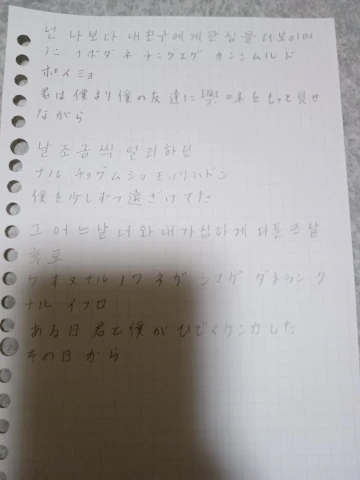 넌 나보다 내 친구에게 관심을 더 보이며
ノン ナボダ ネ チングエゲ カンシムル ド
ボイミョ
君は僕より僕の友達に興味をもっと見せ
ながら
날 조금씩 멀리하던
ナル チョグムシッ モルリハドン
僕を少しずつ遠ざけてた
그 어느 날 너와 내가 심하게 다툰 그 날
후로
クオヌナル ノワ ネガ シマゲ ダトゥン ク
ナル イフロ
ある日君と僕がひどくケンカした
その日から